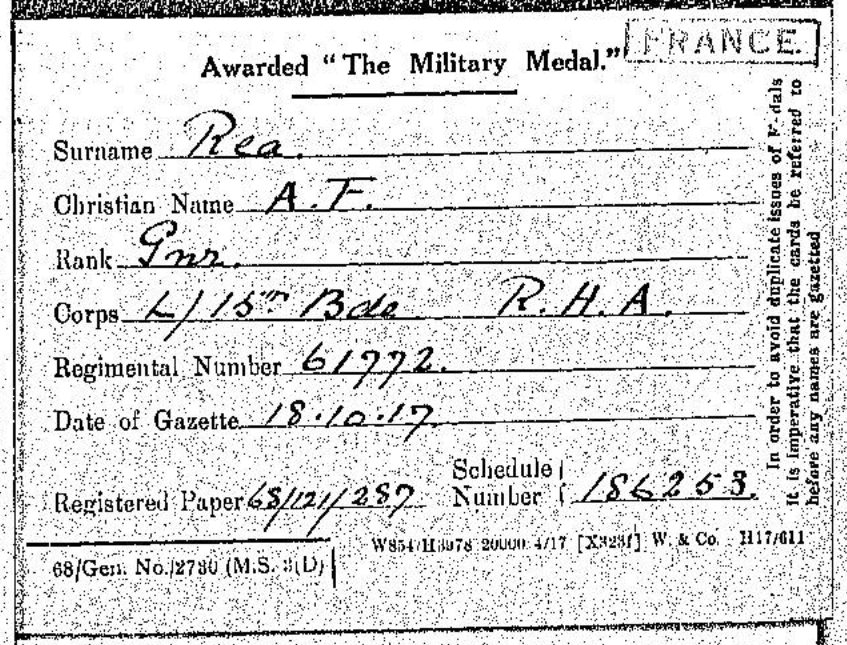 FRANCE.
Awarded "The Military Medal."
Surname Rea.
Christian Name A. F.
Rank Gnr.
Corps L/15th Bde R. H. A.
Regimental Number 61772.
Date of Gazette 18.10.17
Registered Paper 68/121/287
Schedule Number 186253.
68/Gen. No./2780 (M.S. 3(D)
20000 4/17 W. & Co. H17/611
In order to avoid duplicate issues of
it is imperative that the cards be referred to
before any names are gazetted